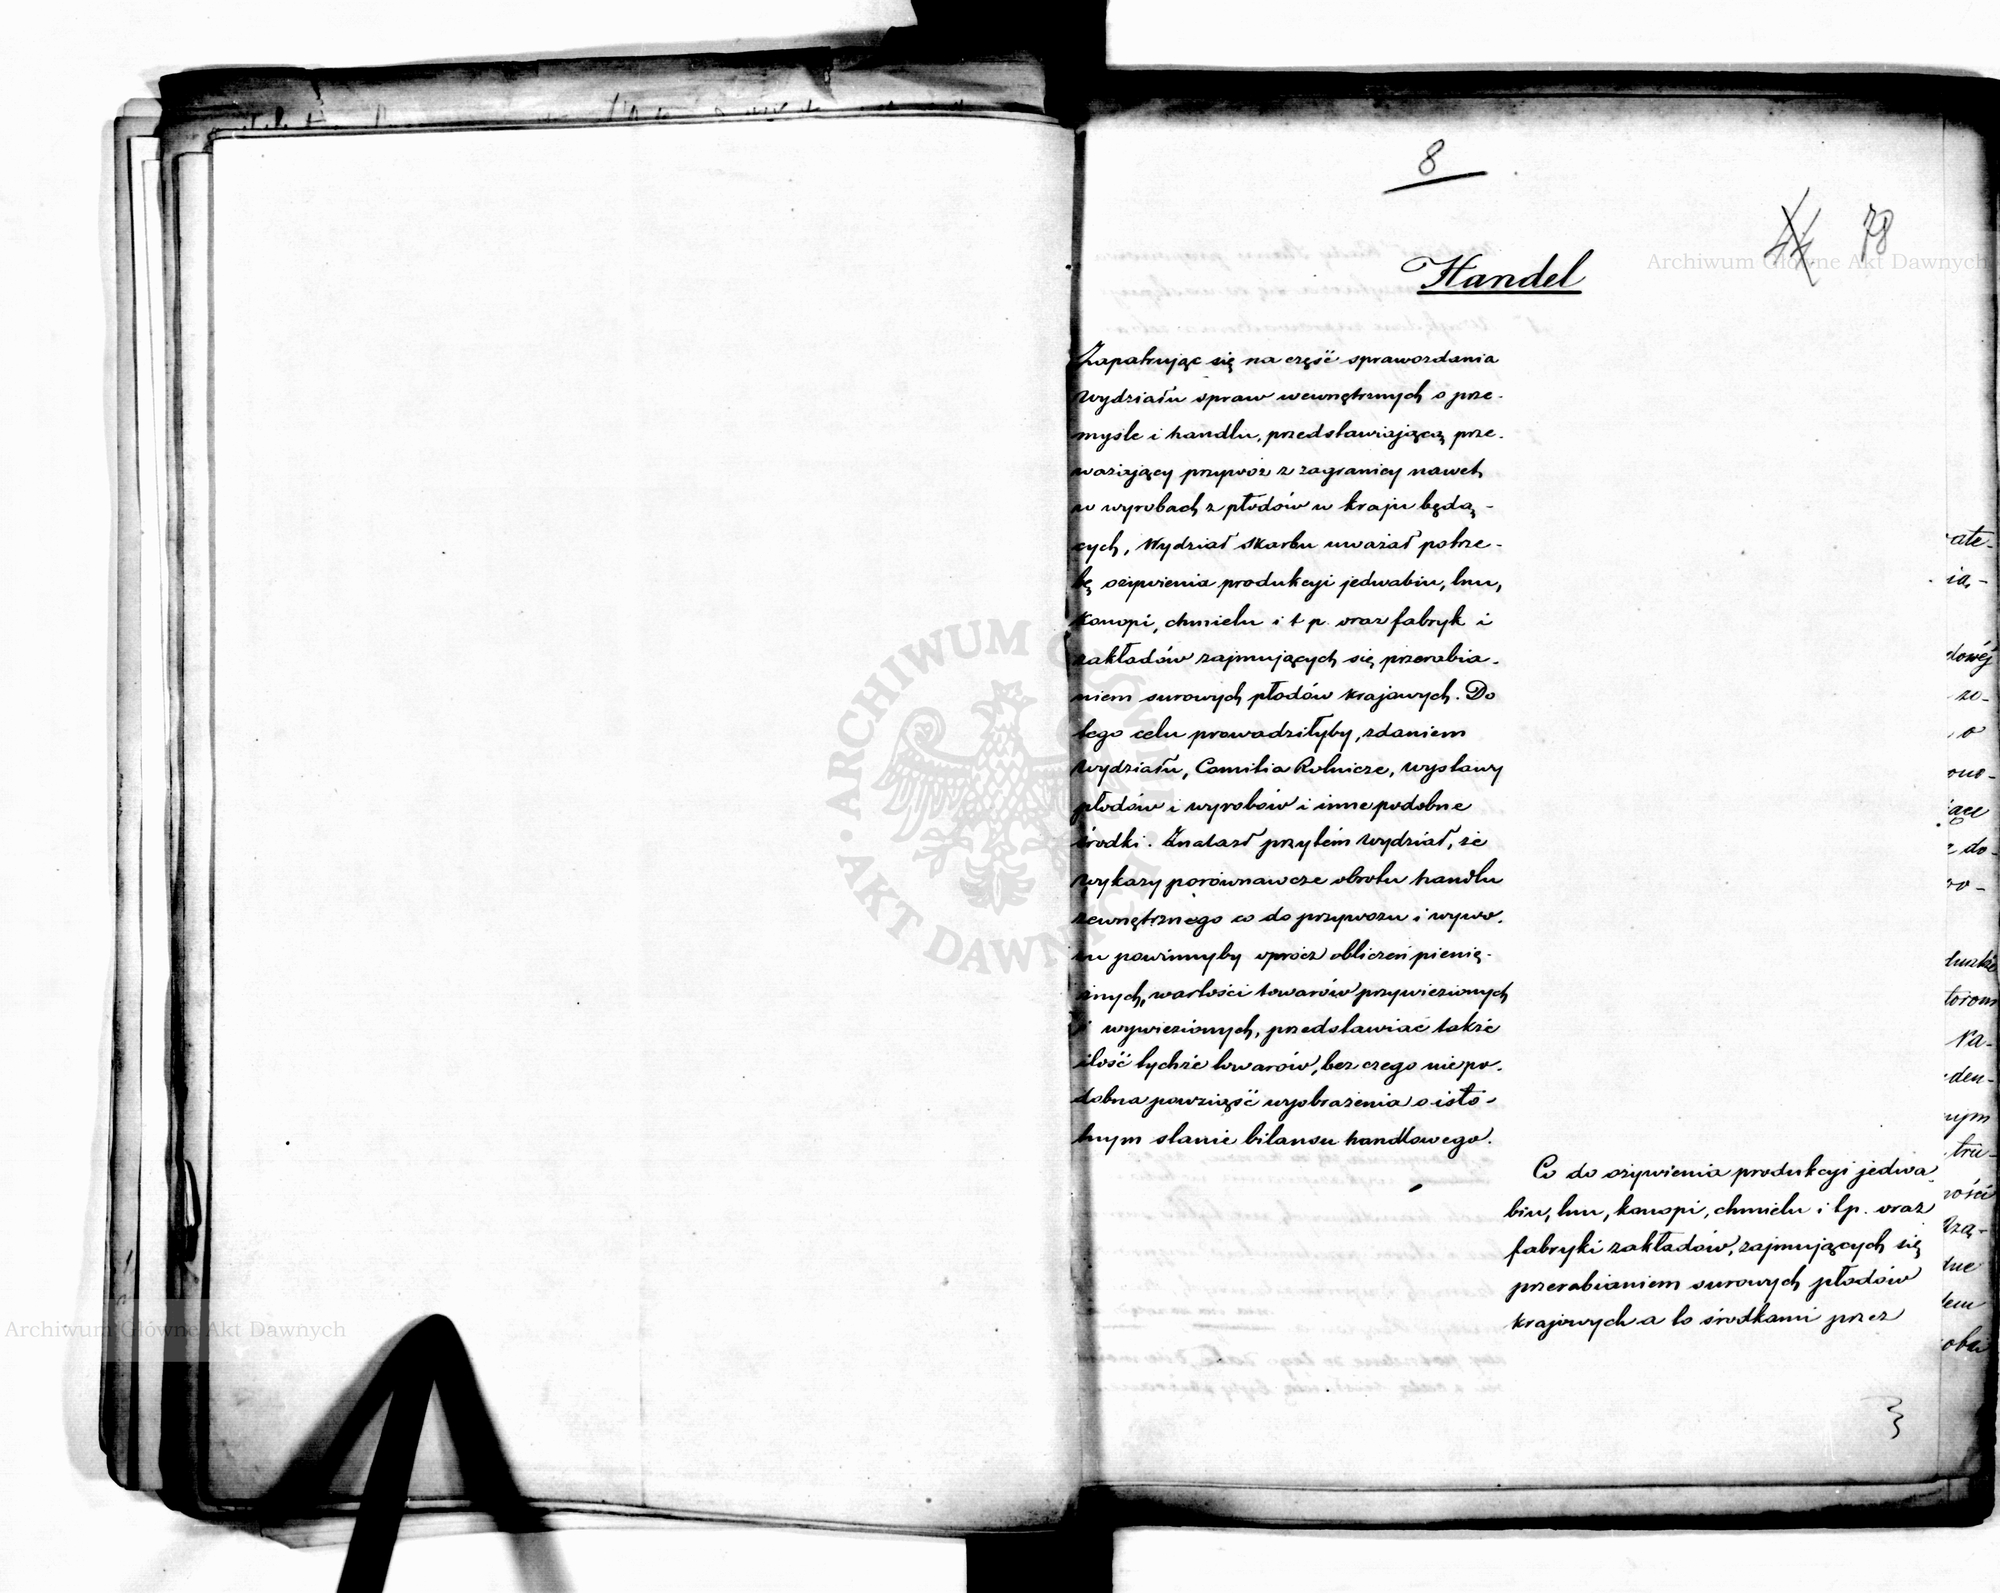 8
44 78
Handel
Zapatrując się na część sprawozdania
Wydziału spraw wewnętrznych o prze-
myśle i handlu, przedstawiającą prze-
ważający przywóz z zagranicy nawet
w wyrobach z płodów w kraju będą-
cych, Wydział Skarbu uważał potrze-
bę ożywienia produkcyi jedwabiu, lnu,
konopi, chmielu i t p. oraz fabryk i
zakładów zajmujących się przerabia-
niem surowych płodów krajowych. Do
tego celu prowadziłyby, zdaniem
Wydziału, Comitia Rolnicze, wystawy
płodów i wyrobów i inne podobne
środki. Znalazł przytém Wydział, że
wykazy porównawcze obrotu handlu
zewnętrznego co do przywozu i wywo-
zu powinnyby oprócz obliczeń pienię-
żnych, wartości towarów przywiezionych
i wywiezionych, przedstawiać także
ilość tychże towarów, bez czego niepo-
dobna powziąść wyobrażenia o isto-
tnym stanie bilansu handlowego.
Co do ożywienia produkcyi jedwa
biu, lnu, konopi, chmielu i t.p. oraz
fabryk i zakładów, zajmujących się
przerabianiem surowych płodów
krajowych a to środkami przez
Archiwum Główne Akt Dawnych
Archiwum Główne Akt Dawnych
ARCHIWUM GŁÓWNE AKT DAWNYCH